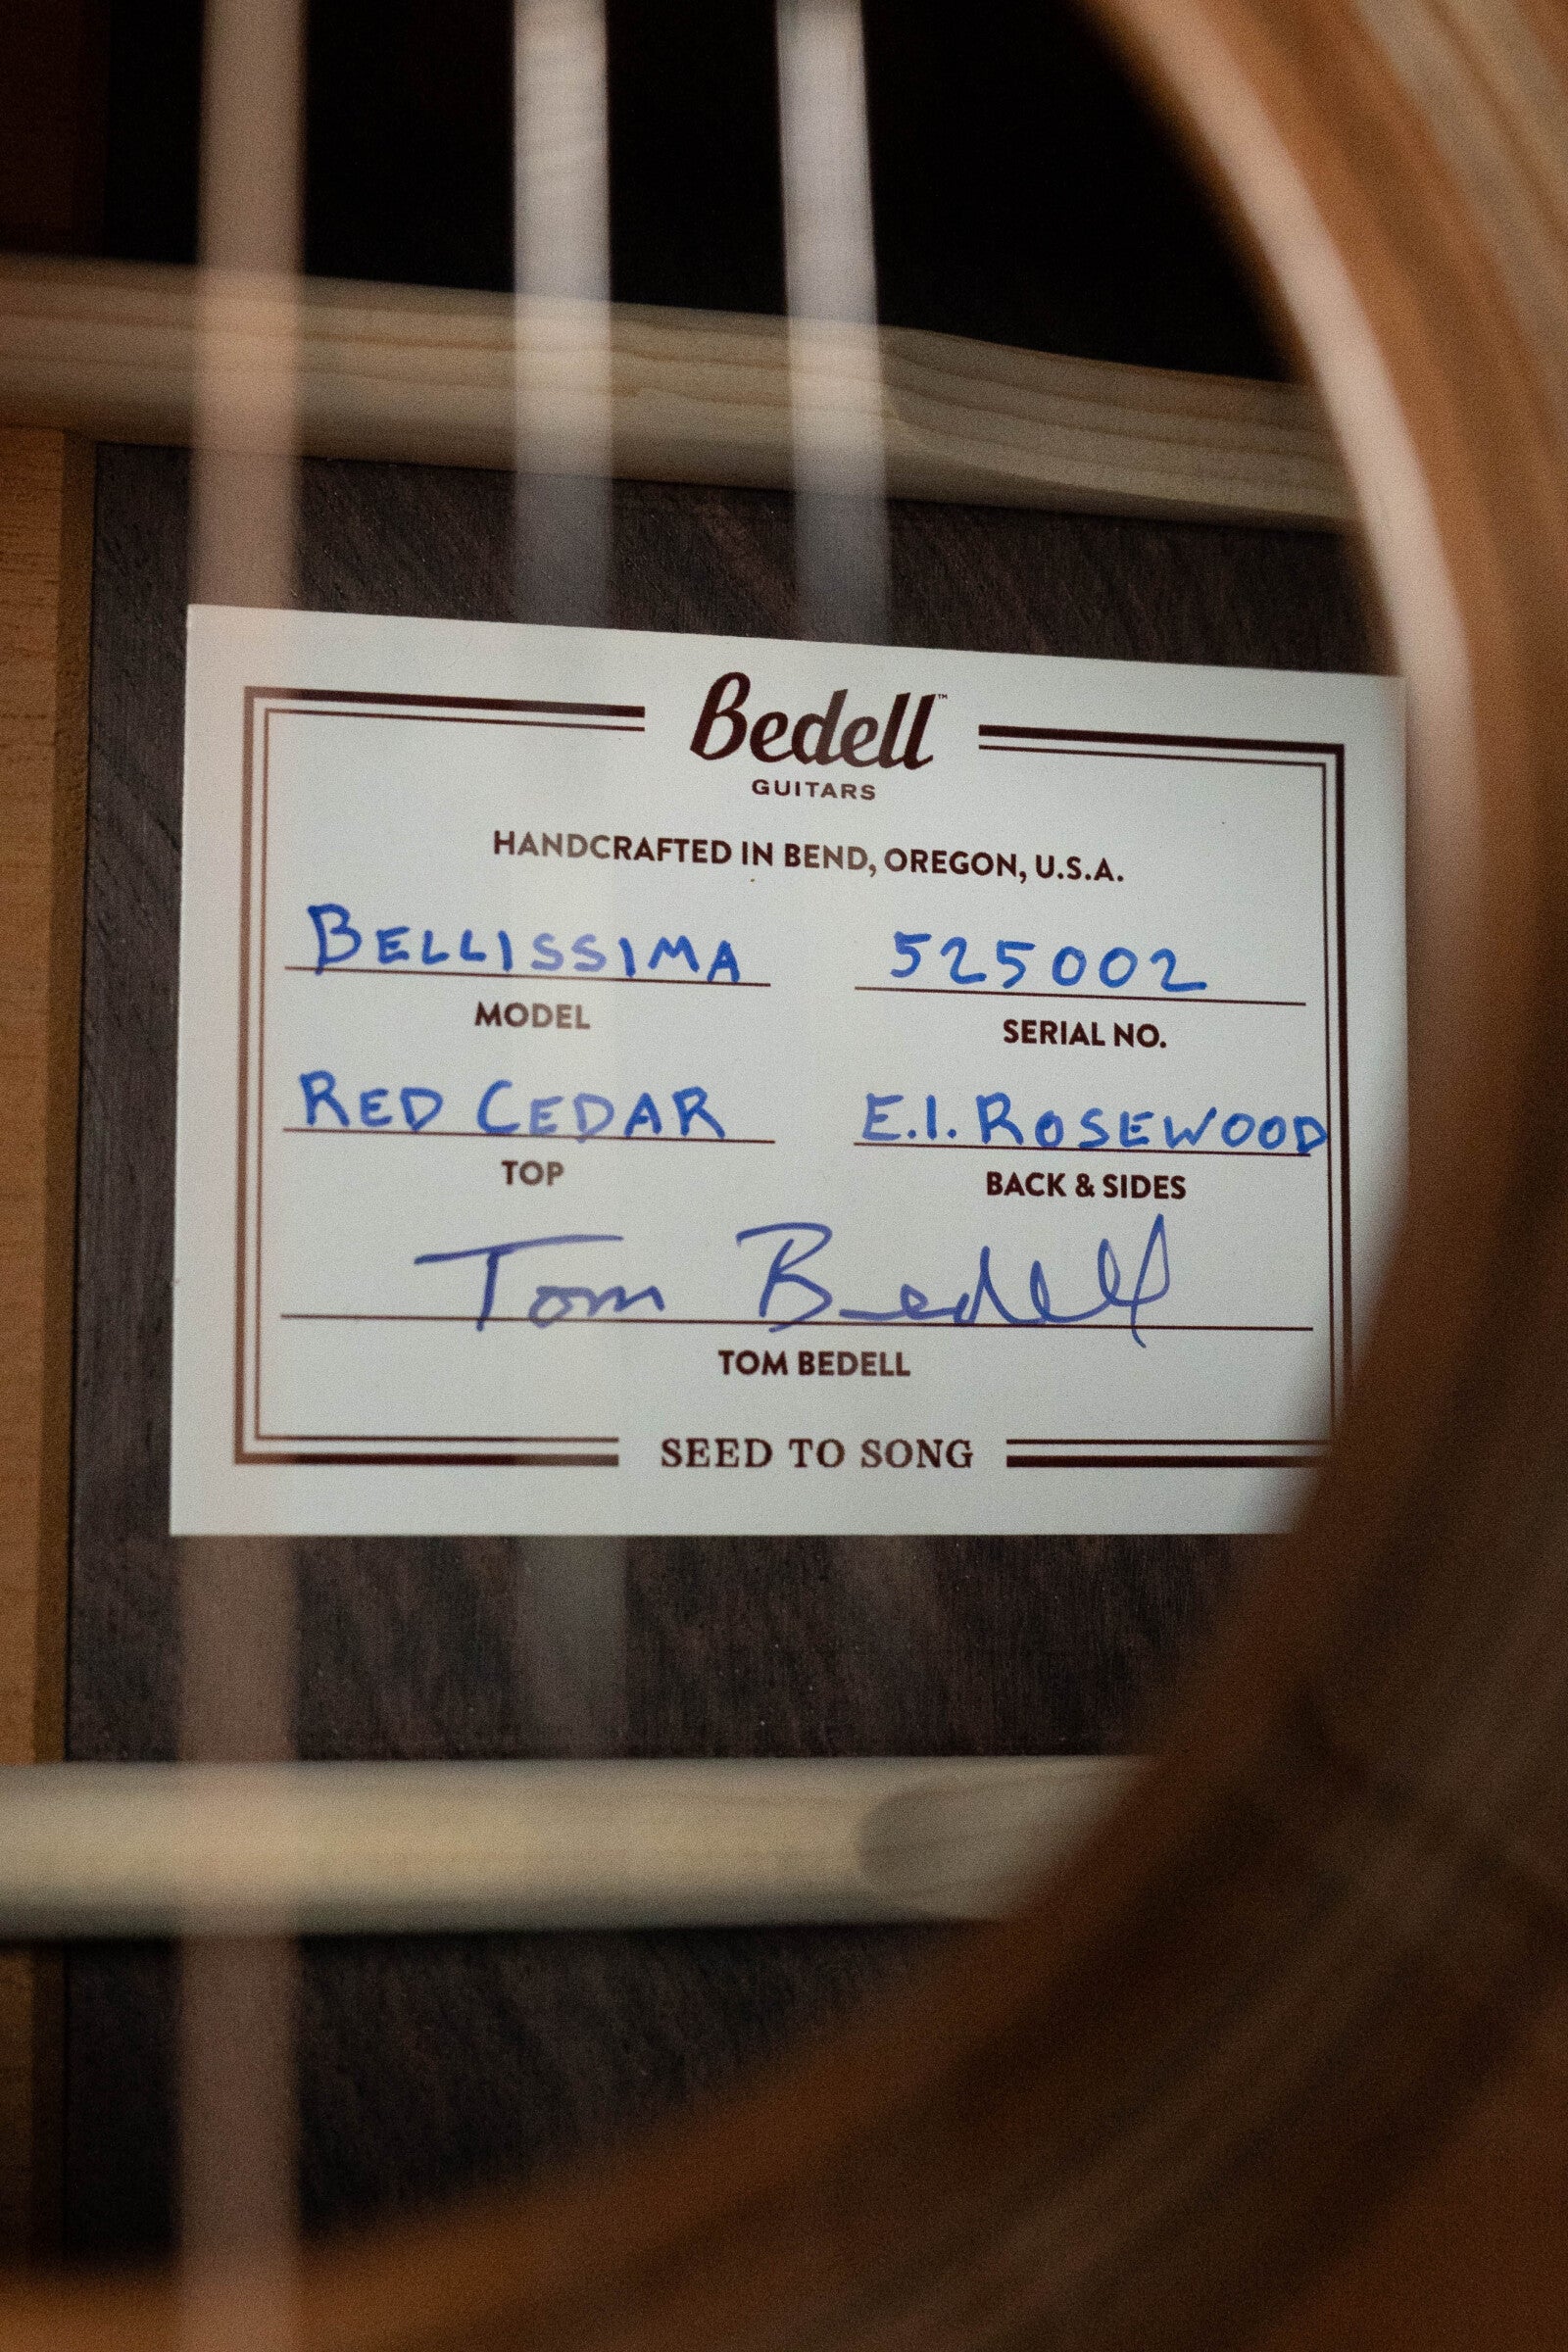 Bedell™
GUITARS
HANDCRAFTED IN BEND, OREGON, U.S.A.
BELLISSIMA 525002
MODEL SERIAL NO.
RED CEDAR E.I. ROSEWOOD
TOP BACK & SIDES
Tom Bedell
TOM BEDELL
SEED TO SONG